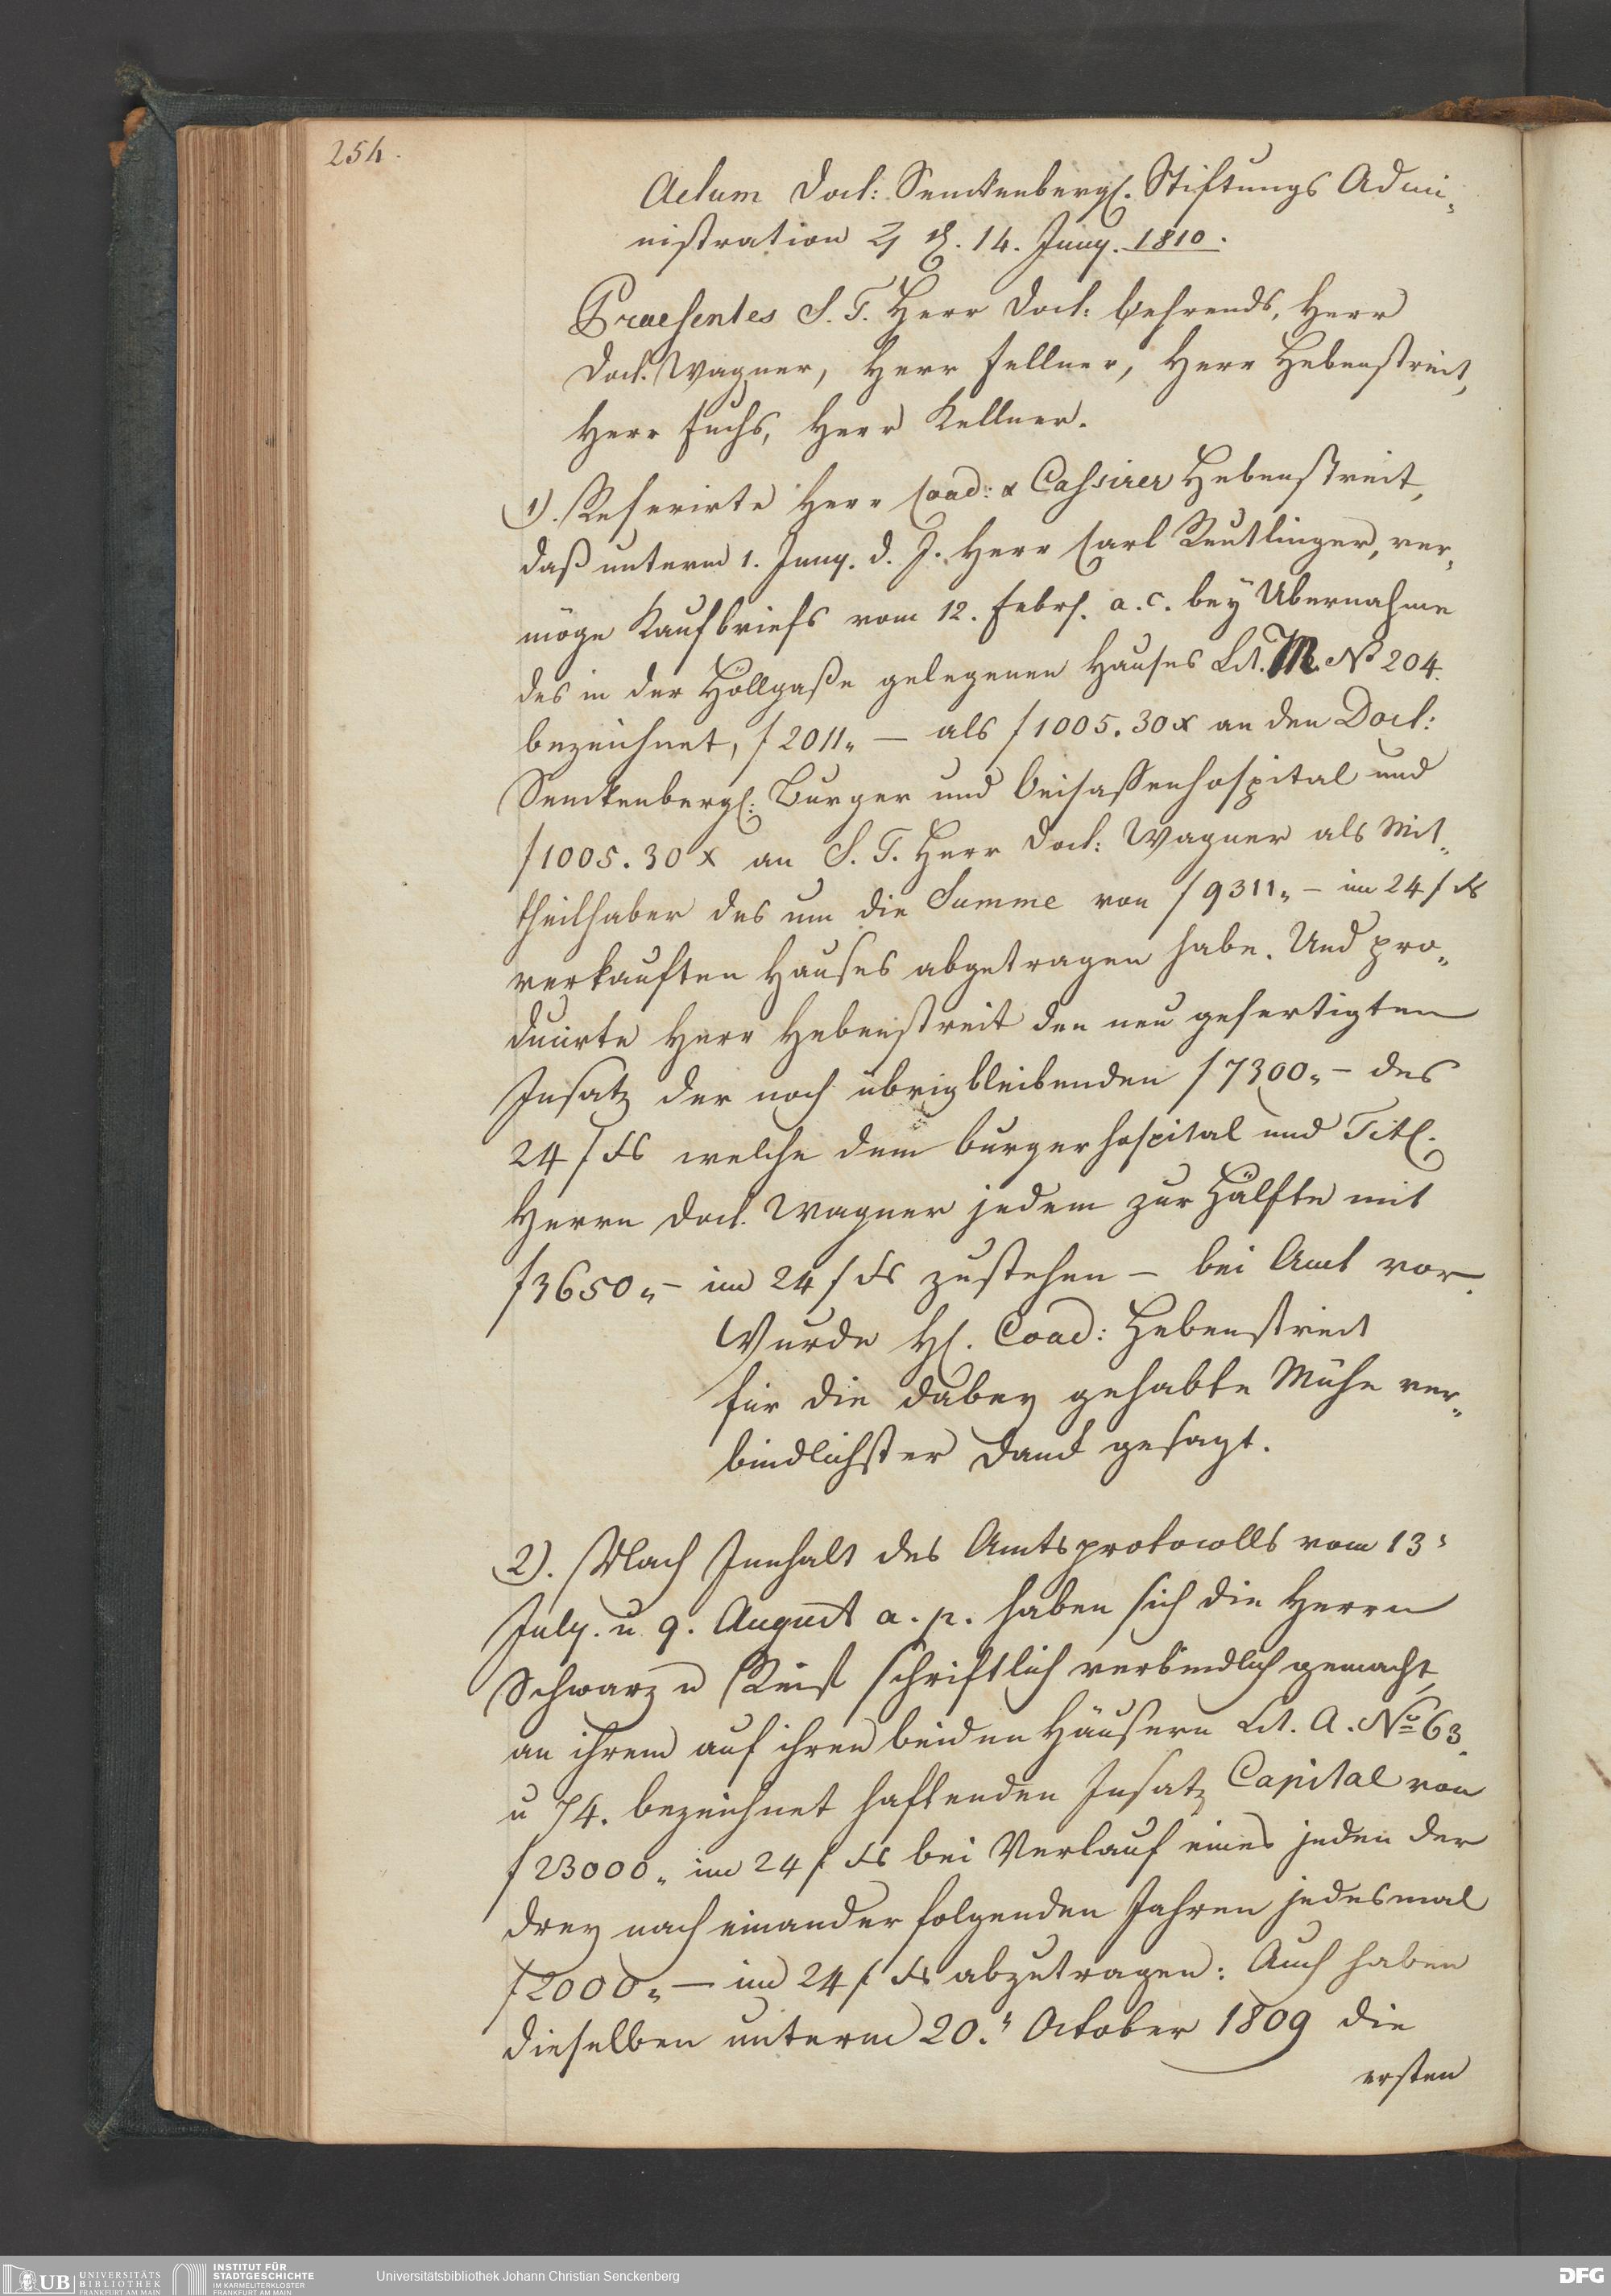 254.
Actum Doct: Senckenbergl. Stiftungs Admi„
nistration ♃ d. 14. Juny. 1810.
Praesentes S. T. Herr Doct: Behrends, Herr
Doct. Wagner, Herr Fellner, Herr Hebenstreit,
Herr Fuchs, Herr Kellner.
1). Referirte Herr Coad: & Cassirer Hebenstreit,
daß unterm 1. Juny. d. J. Herr Carl Reutlinger, ver„
möge Kaufbriefs vom 12. Febr. a. c. bey Übernahme
des in der Höllgaße gelegenen Hauses Lit. M. No 204.
bezeichnet, f 2011„ — als f 1005. 30 x an den Doct:
Senckenbergl: Burger und Beisassenhospital und
f 1005. 30 x an S. T. Herr Doct: Wagner als Mit„
theilhaber des um die Summe von f 9311„ — im 24 f Fs
verkauften Hauses abgetragen habe. Und pro„
ducirte Herr Hebenstreit den neu gefertigten
Insatz der noch übrigbleibenden f 7300„ — des
24 f Fs welche dem Burgerhospital und Titl.
Herrn Doct. Wagner jedem zur Hälfte mit
f 3650„ — im 24 f Fs zustehen — bei Amt vor.
Wurde H. Coad: Hebenstreit
für die dabey gehabte Mühe ver„
bindlichster Danck gesagt.
2). Nach Innhalt des Amtsprotocolls vom 13
July. u 9. August a. p. haben sich die Herrn
Schwarz u Reiß schriftlich verbindlich gemacht,
an ihrem auf ihren beiden Häusern Lit. A. No 63.
u 74. bezeichnet haftenden Insatz Capital von
f 23000„ im 24 f Fs bei Verlauf eines jeden der
drey nach einander folgenden Jahren jedesmal
f 2000„ — im 24 f Fs abzutragen: Auch haben
dieselben unterm 20. October 1809 die
ersten
UB UNIVERSITÄTS
BIBLIOTHEK
FRANKFURT AM MAIN
INSTITUT FÜR
STADTGESCHICHTE
IM KARMELITERKLOSTER
FRANKFURT AM MAIN
Universitätsbibliothek Johann Christian Senckenberg
DFG